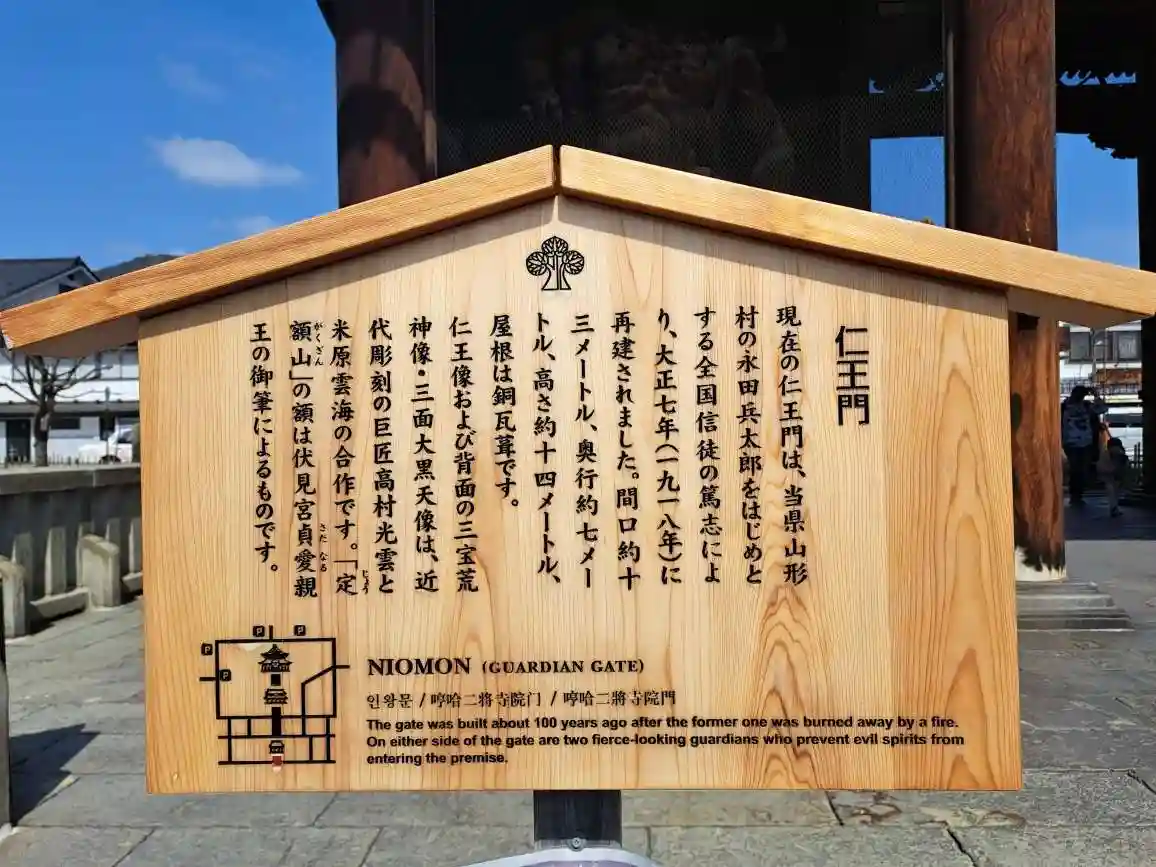 仁王門
現在の仁王門は、当県山形
村の永田兵太郎をはじめと
する全国信徒の篤志によ
り、大正七年(一九一八年)に
再建されました。間口約十
三メートル、奥行約七メー
トル、高さ約十四メートル、
屋根は銅瓦葺です。
仁王像および背面の三宝荒
神像・三面大黒天像は、近
代彫刻の巨匠高村光雲と
米原雲海の合作です。「定
じょう
額山」の額は伏見宮貞愛親
がくさん
さだ なる
王の御筆によるものです。
P
P
P
P
NIOMON (GUARDIAN GATE)
인왕문 / 哼哈二將寺院门 / 哼哈二將寺院門
The gate was built about 100 years ago after the former one was burned away by a fire.
On either side of the gate are two fierce-looking guardians who prevent evil spirits from
entering the premise.